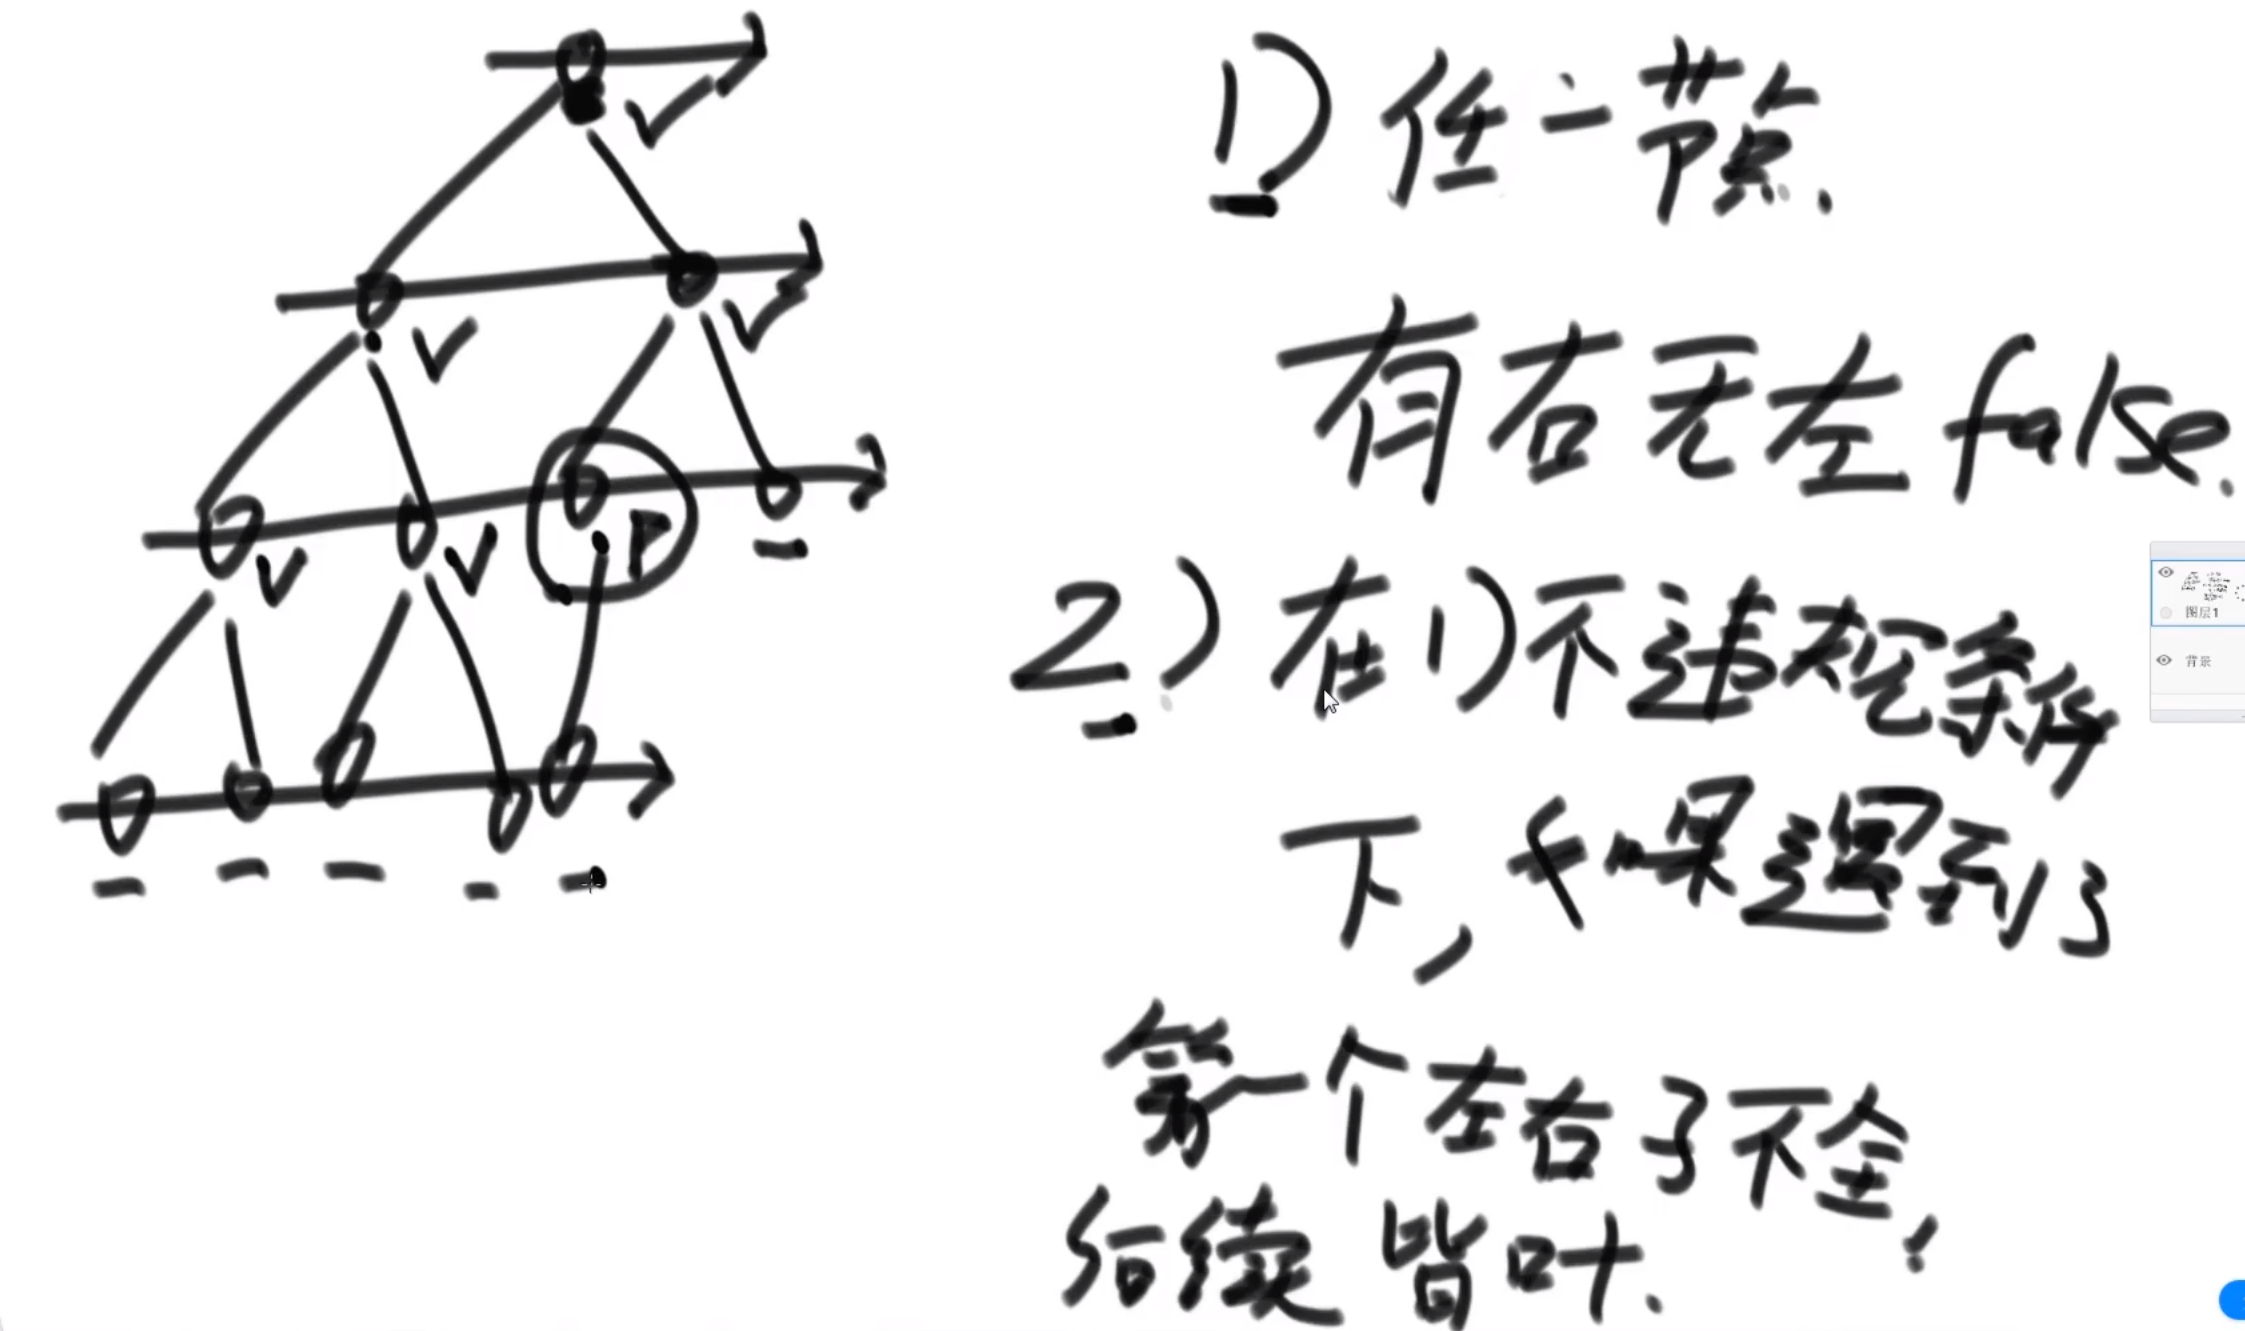 1) 任一节点.
有右无左 false.
2) 在1)不违规条件
下, 如果遇到了
第一个左右子不全,
后续皆叶.
图层1
背景